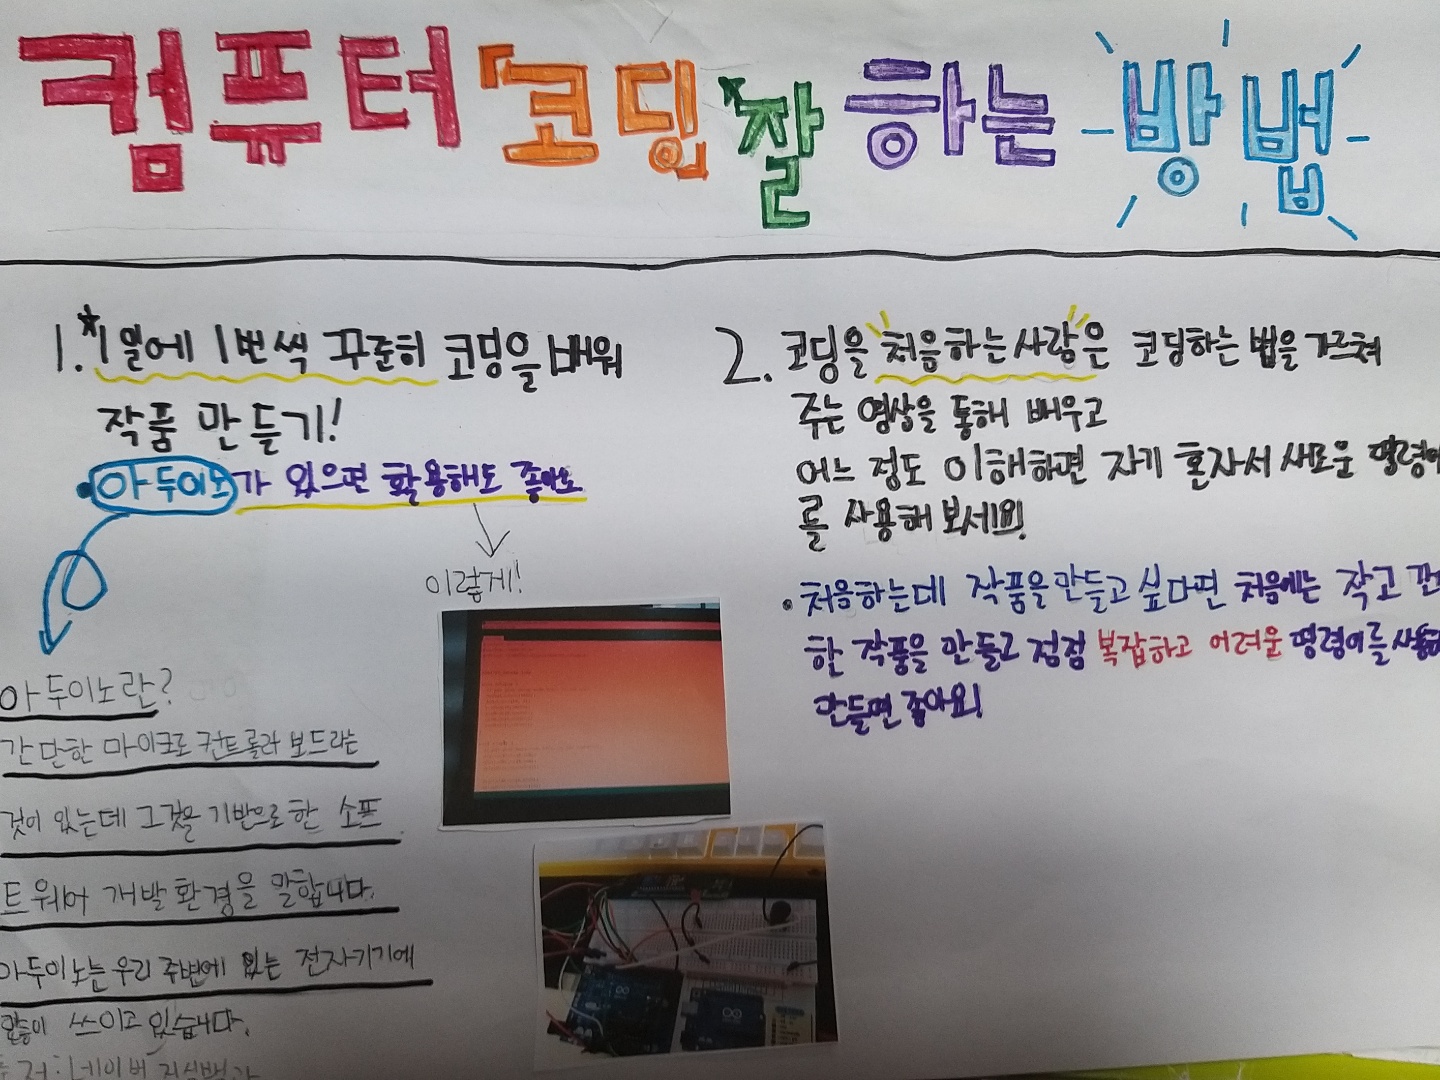 컴퓨터 코딩 잘 하는 방법
1. 1일에 1번씩 꾸준히 코딩을 배워
작품 만들기!
아두이노가 있으면 활용해도 좋아요
이렇게!
아두이노란?
간단한 마이크로 컨트롤러 보드라는
것이 있는데 그것을 기반으로 한 소프
트웨어 개발환경을 말합니다.
아두이노는 우리 주변에 있는 전자기기에
많이 쓰이고 있습니다.
네이버 지식백과
2. 코딩을 처음하는 사람은 코딩하는 법을 가르쳐
주는 영상을 통해 배우고
어느 정도 이해하면 자기 혼자서 새로운 명령어
를 사용해 보세요!
• 처음하는데 작품을 만들고 싶다면 처음에는 작고 간
한 작품을 만들고 점점 복잡하고 어려운 명령어를
만들면 좋아요!